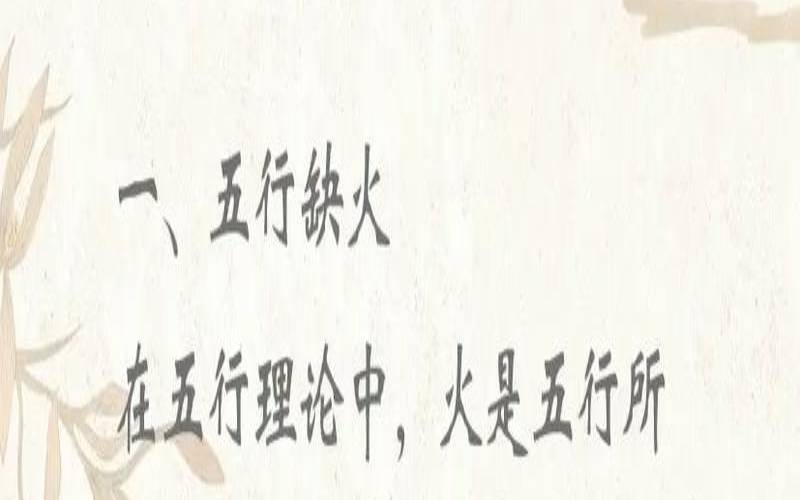 一、五行缺火
在五行理论中，火是五行所